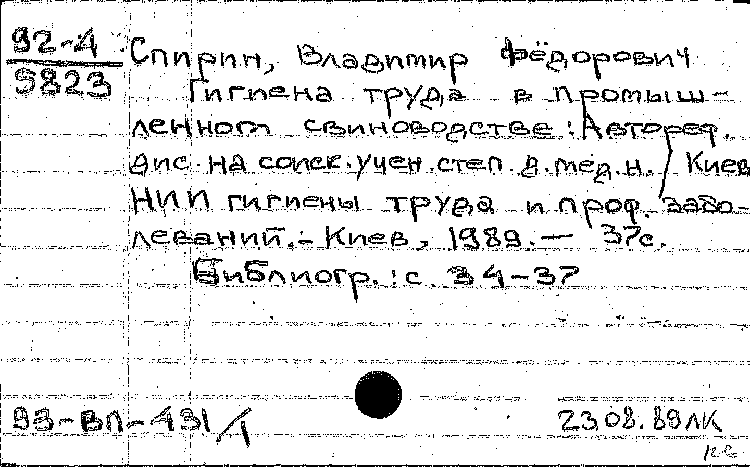 92-4
5823
Спирин, Владимир Фёдорович
Гигиена труда в промыш-
ленном свиноводстве: Автореф.
дис. на соиск. учен. степ. д. мед. н. / Киев
НИИ гигиены труда и проф. забо-
леваний. - Киев, 1989. — 37с.
Библиогр.: с. 34-37
93-ВП-431/1
23.08.89 ЛК